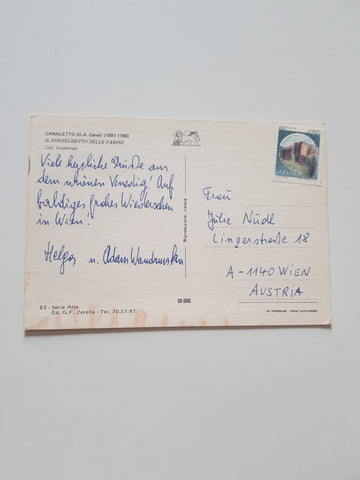 CANALETTO (G.A. Canal) (1697-1768)
IL FONTEGHETTO DELLE FARINE
Coll. Giustinian
Viele herzliche Grüße aus
dem schönen Venedig! Auf
baldiges frohes Wiedersehen
in Wien!
Helga u. Adam Wandruszka
83 - Serie Arte
Ed. G.F. Zerella - Tel. 70.57.97
Riproduzione vietata
ITALIA
Frau
Julie Nüdl
Lingerstraße 18
A-1140 WIEN
AUSTRIA